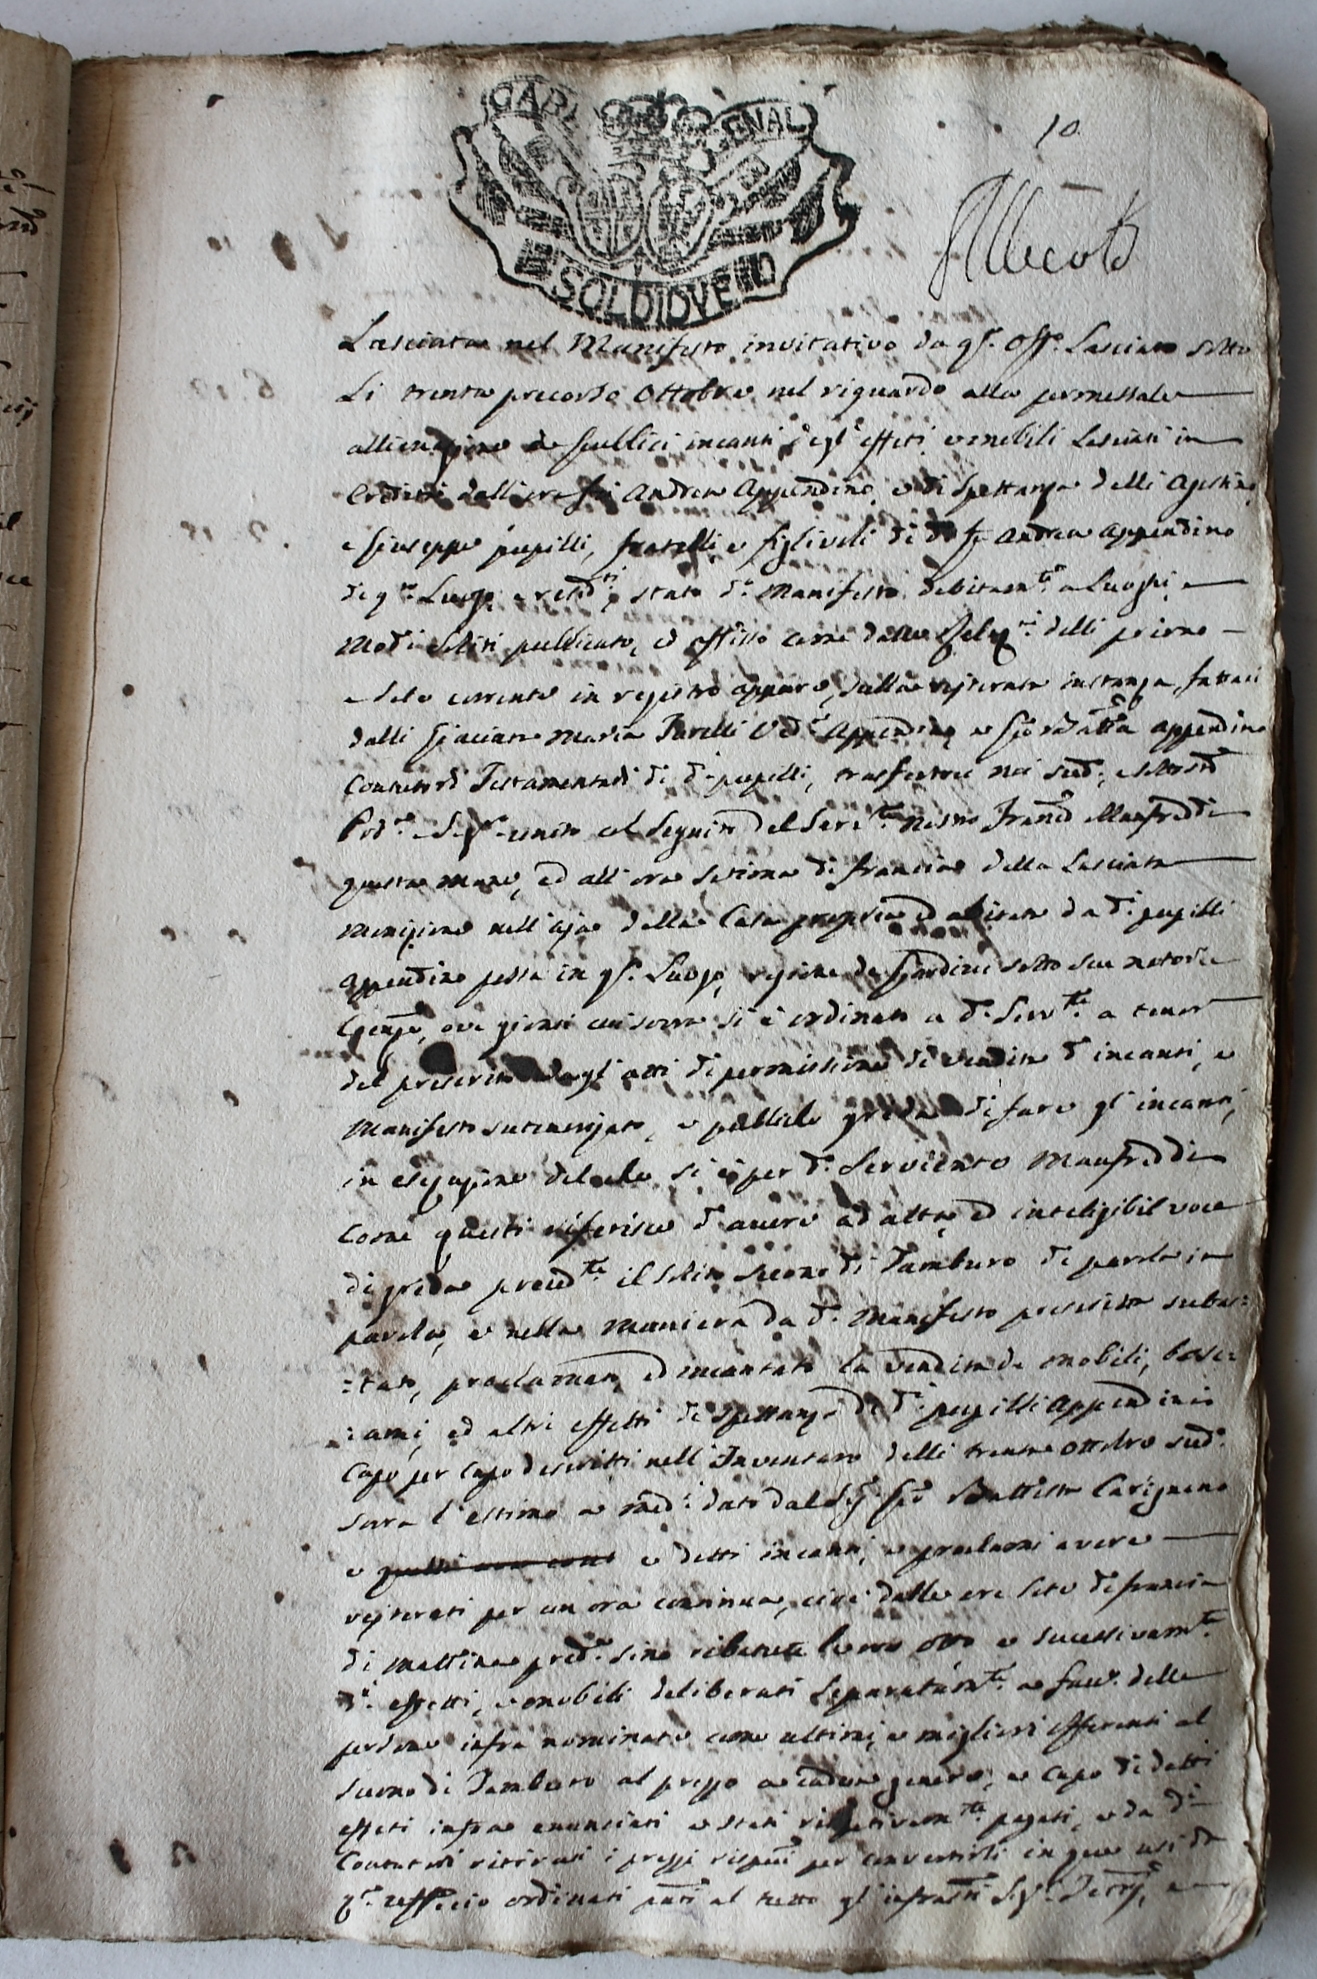 10
SOLDI DVE
Lasciata nel Manifesto invitativo da q.º Off.º Lasciato sotto
Li trenta precorso Ottobre nel riguardo alla permessale
alienazione a pubblici incanti degl' effetti, e mobili Lasciati in
eredità dall' ora fu Andrea Appendino, e di spettanza delli Agostino,
e Giuseppe pupilli, fratelli, e figlivoli di d.º fu Andrea Appendino
di q.to Luogo, stato d.º Manifesto debitam.te a Luoghi, e
Modi soliti publicato, ed affisso come dalle Relaz.ni delli primo
e sete corrente in registro appare, sulla rejterata instanza fattaci
dalli Giacinta Maria Vad.ª Appendino, e Gio Batta Appendino
Contutori Testamentarj di d.i pupilli, trasfertici noi sud.º, e sottos.to
Pod.º e Seg.ro unito col seguito del Serv.te nostro Franc.º Manfreddi
questa mane, ed all' ora settima di francia della Lasciata
menzione nell' aja della Casa propria ed abitata da d.i pupilli
Appendino posta in q.º Luogo, regione de Giardini sotto sue notorie
Coerenze, ove giunti cui sovra si è ordinato a d.º Serv.te a tenor
del prescritto dagl' atti di permissione di vendita d' incanti, e
Manifesto sutenorizato, e publiche grida di fare gl' incanti,
in esequzione del che si è per d.º Serviente Manfreddi
Come questi riferisce d' avere ad alta, ed inteligibil voce
di grida preced.te il solito suono di Tamburo di parola in
parola, e nella maniera da d.º Manifesto prescritta subas:
:tato, proclamato, ed incantato la vendita de mobili, besti:
:ami, ed altri effetti di spettanza di d.i pupilli Appendini
Capo per capo descritti nell' Inventaro delli trenta Ottobre sud.º
sovra l' estimo a med.i dato dal Sig.r Gio Battista Carignano
e e detti incanti, e proclami avere
rejterati per un ora continua, cioè dalle ore sete di francia
di mattina pred.ª sino ribatute le ore otto, e sucessivam.te
d.i effetti, e mobili deliberati separatam.te a fav.e delle
persone infra nominate come ultimi, e migliori offerenti al
suono di Tamburo al prezzo a cadun genere, e capo di detti
effetti infra enunciati e stati rispetivam.te pagati, e da d.i
Contutori ritirati i prezzi rispetivi per convertirli in que usi da
q.º Ufficcio ordinati pnti al tutto gl' infrascti Sig.i Testj, e